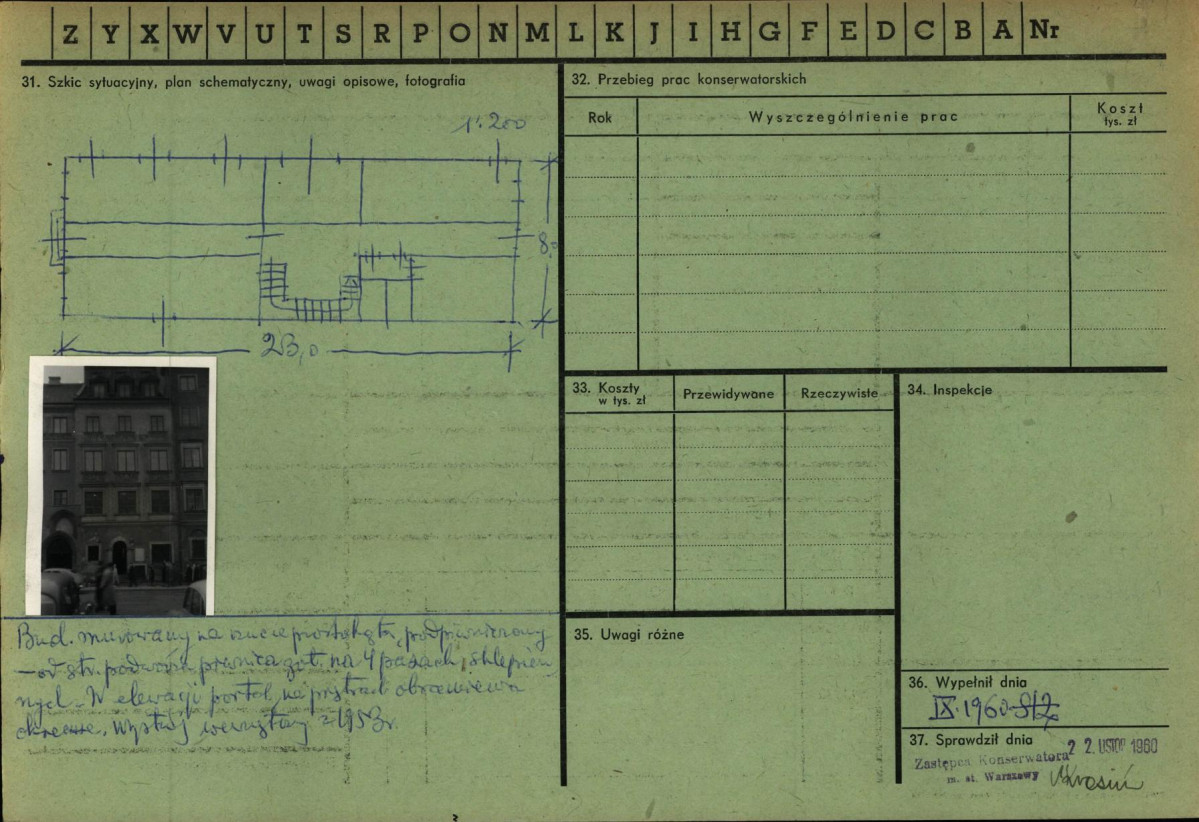 Z Y X W V U T S R P O N M L K J I H G F E D C B A Nr
31. Szkic sytuacyjny, plan schematyczny, uwagi opisowe, fotografia
1:200
8,0
23,0
Bud. murowany na rzucie prostokąta, podpiwniczony
– od str. podwórza piwnica got. na 4 pasach sklepien
nych. W elewacji portal, na piętrach obramienia
okienne. Wystrój wewnętrzny z 1953 r.
32. Przebieg prac konserwatorskich
Rok
Wyszczególnienie prac
Koszt
tys. zł
33. Koszty
w tys. zł
Przewidywane
Rzeczywiste
34. Inspekcje
35. Uwagi różne
36. Wypełnił dnia
IX. 1960
37. Sprawdził dnia
22. LISTOP 1960
Zastępca Konserwatora
m. st. Warszawy